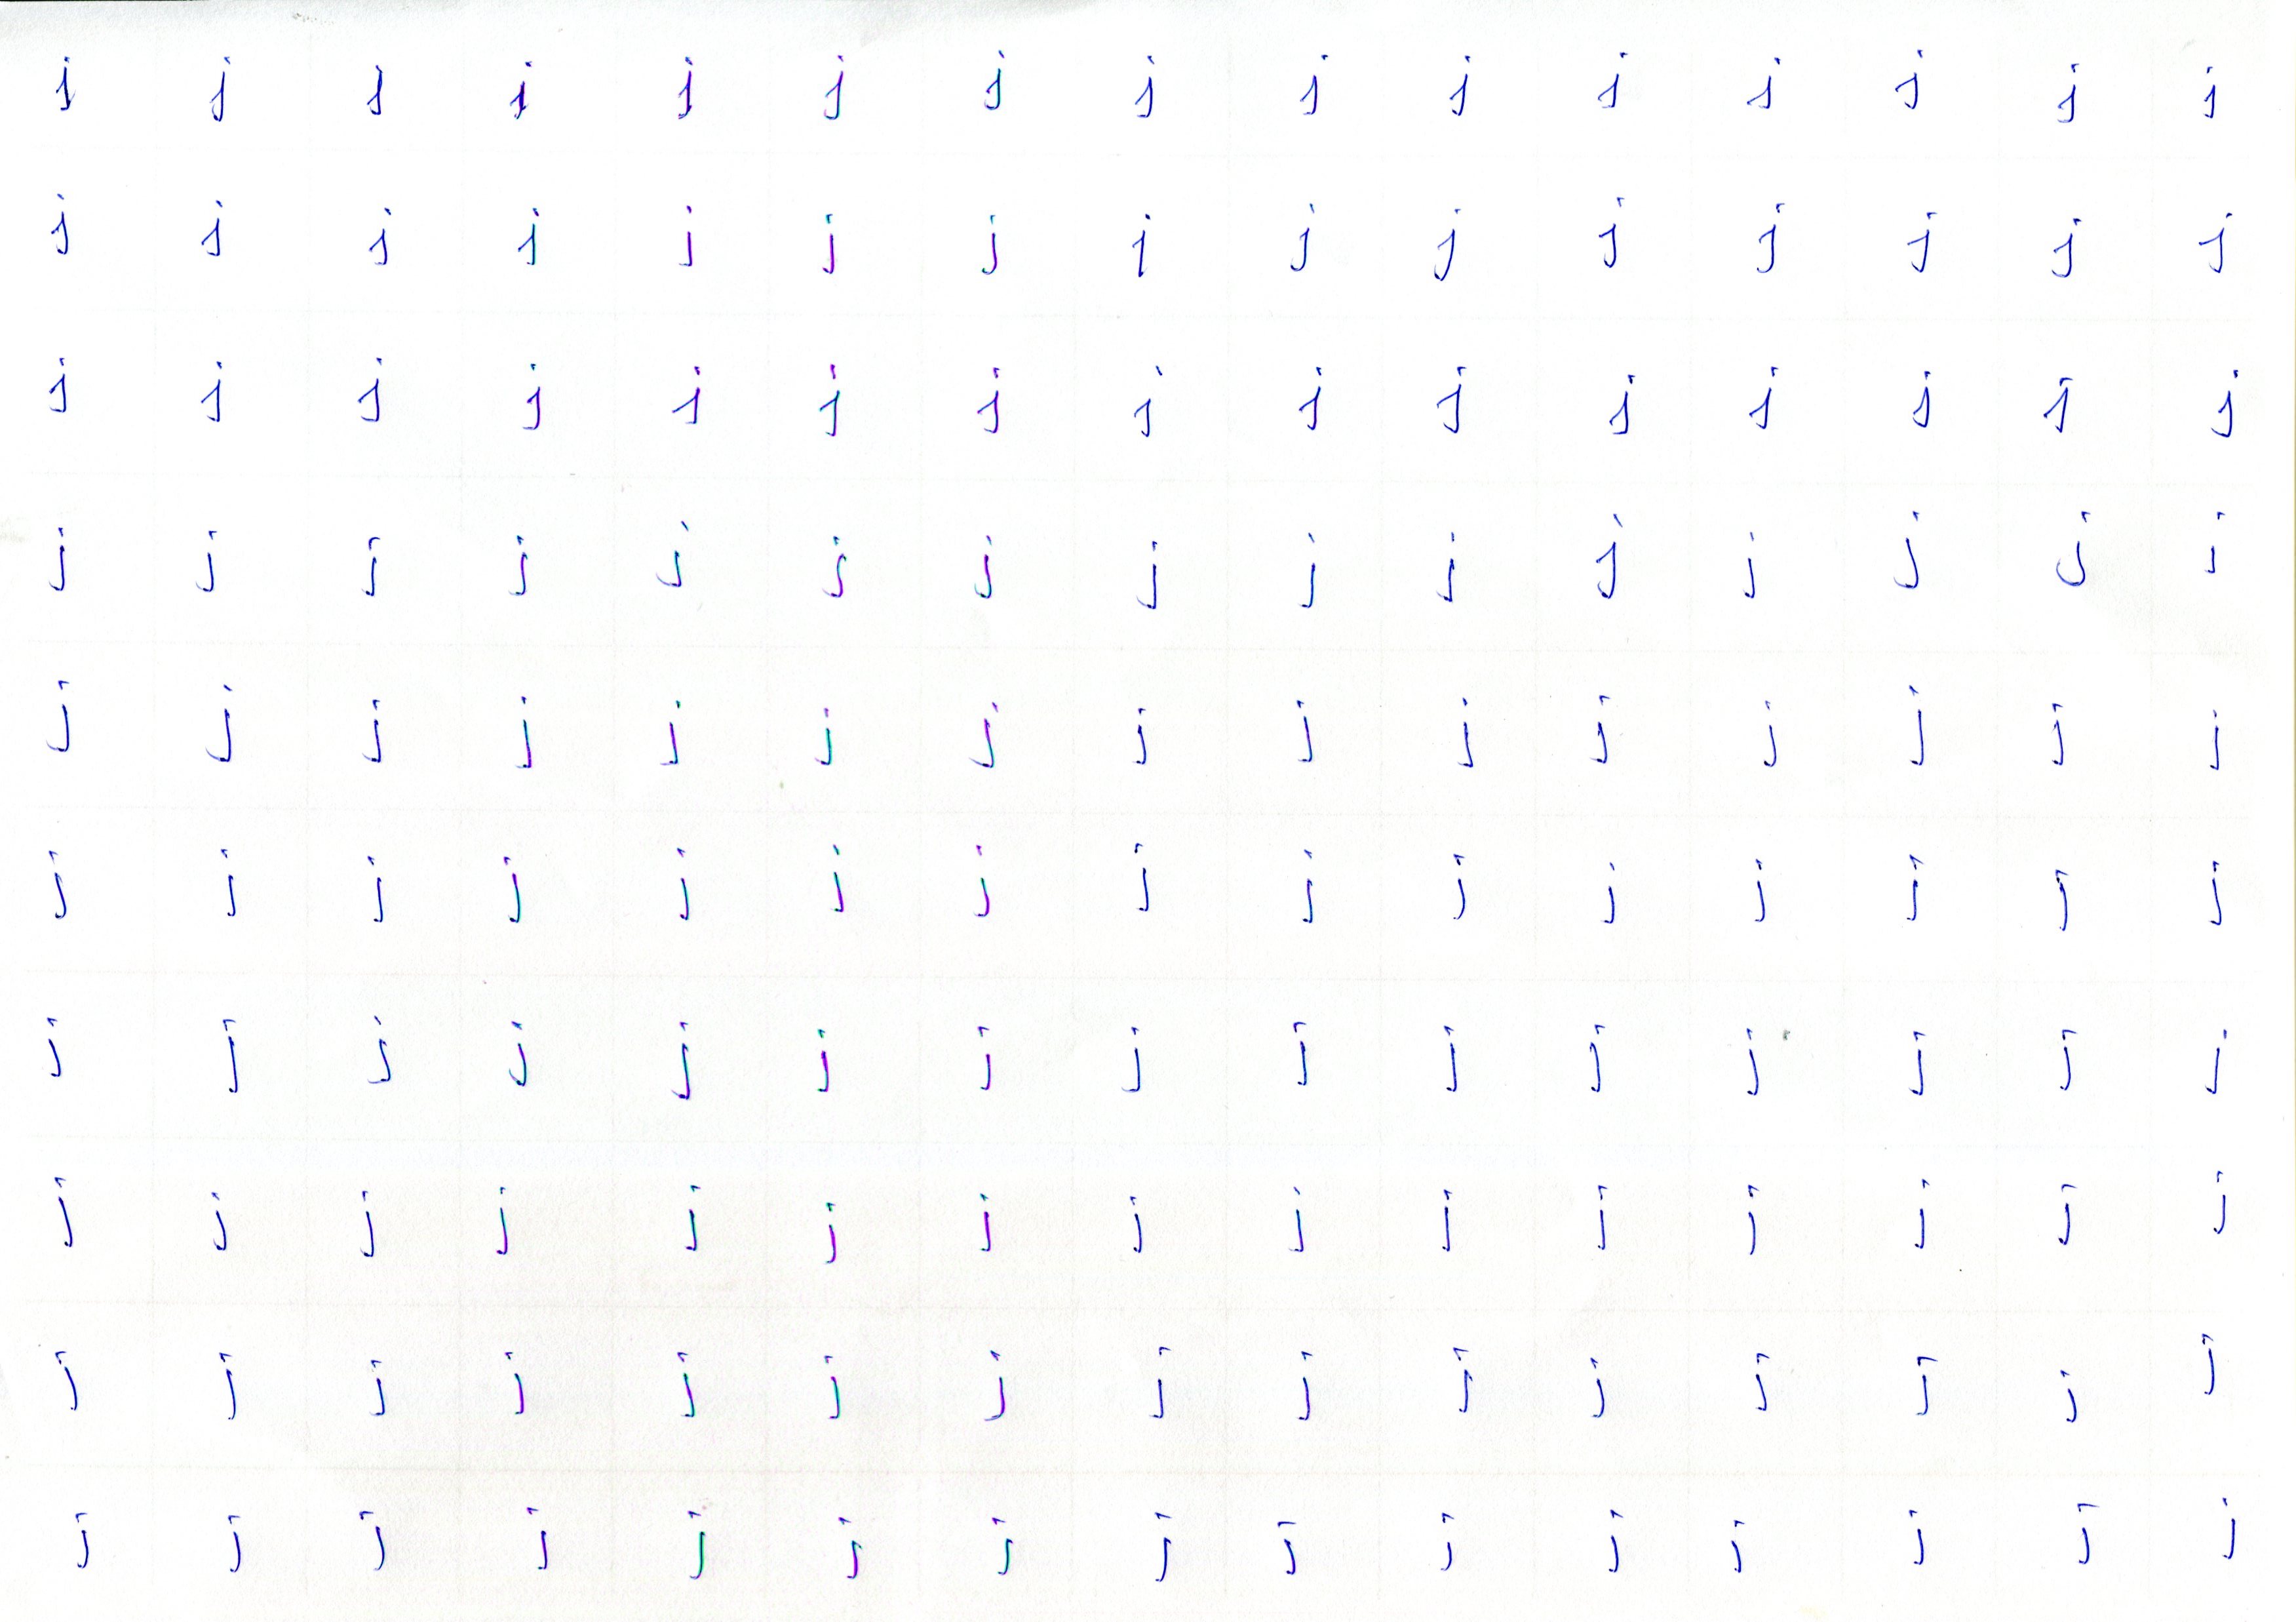 j j j j j j j j j j j j j j j
j j j j j j j j j j j j j j j
j j j j j j j j j j j j j j j
j j j j j j j j j j j j j j j
j j j j j j j j j j j j j j j
j j j j j j j j j j j j j j j
j j j j j j j j j j j j j j j
j j j j j j j j j j j j j j j
j j j j j j j j j j j j j j j
j j j j j j j j j j j j j j j